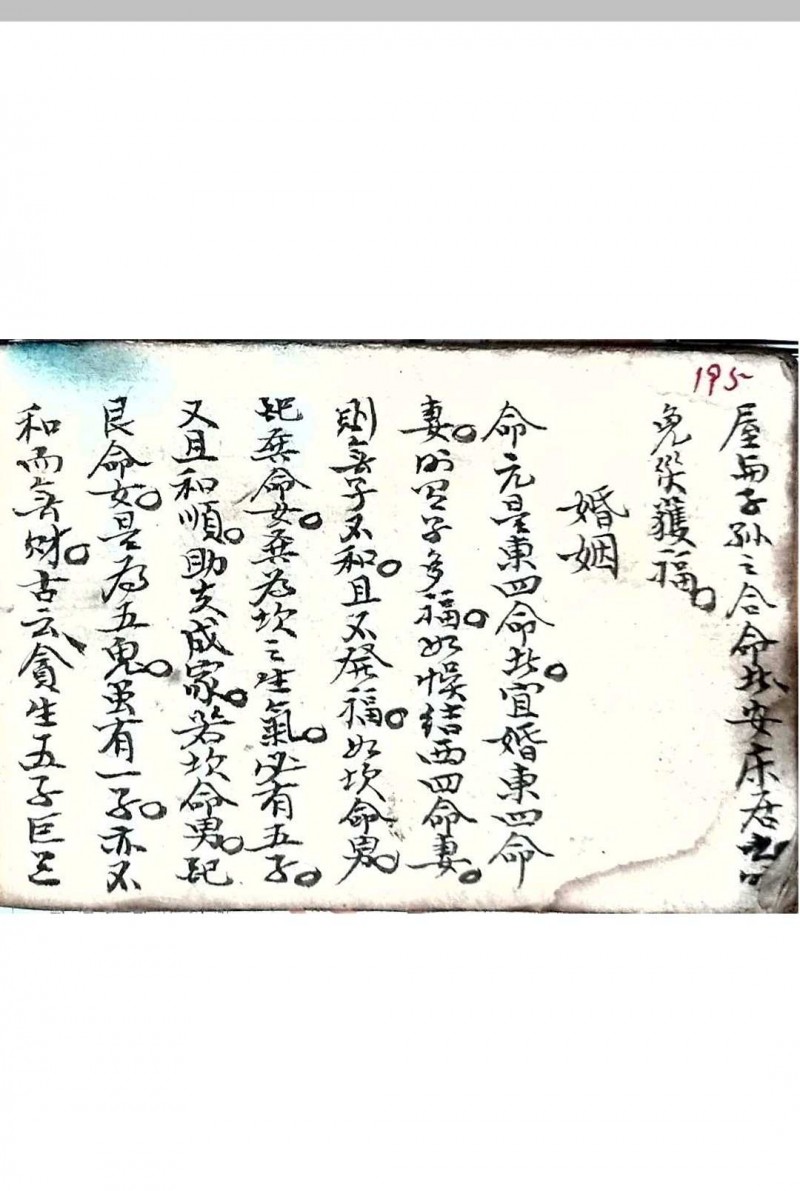 195
屋与子孫之合命此安床居之可
免災獲福。
婚姻
命元是東四命此。宜婚東四命
妻。所以子多福。如悞結西四命妻。
則無子不和。且不發福。如坎命男。
配巽命女。巽為坎之生氣。必有五子。
又且和順。助夫成家。若坎命男。配
艮命女。是為五鬼。虽有一子。亦不
和而無財。古云貪生五子巨三